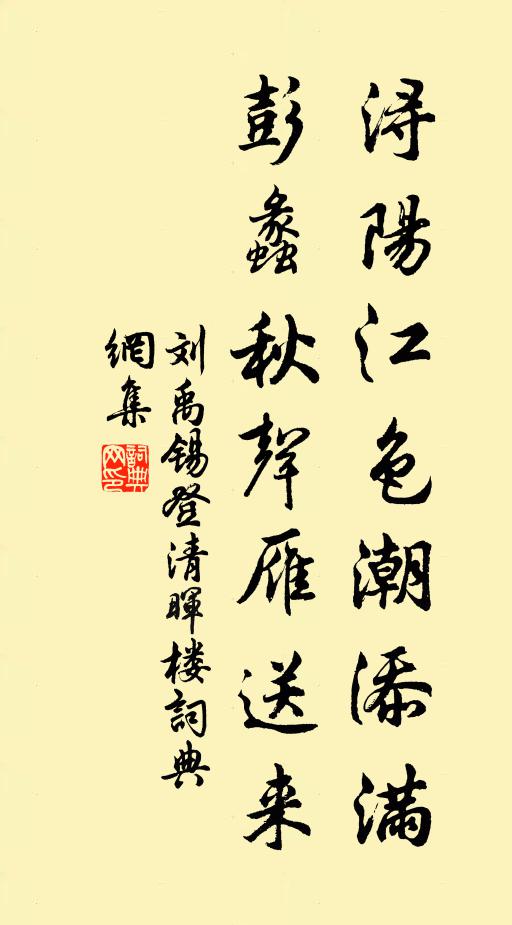 浔陽江色潮添满
彭蠡秋聲雁送来
刘禹锡登清暉楼詞典
網集
詞典
网印